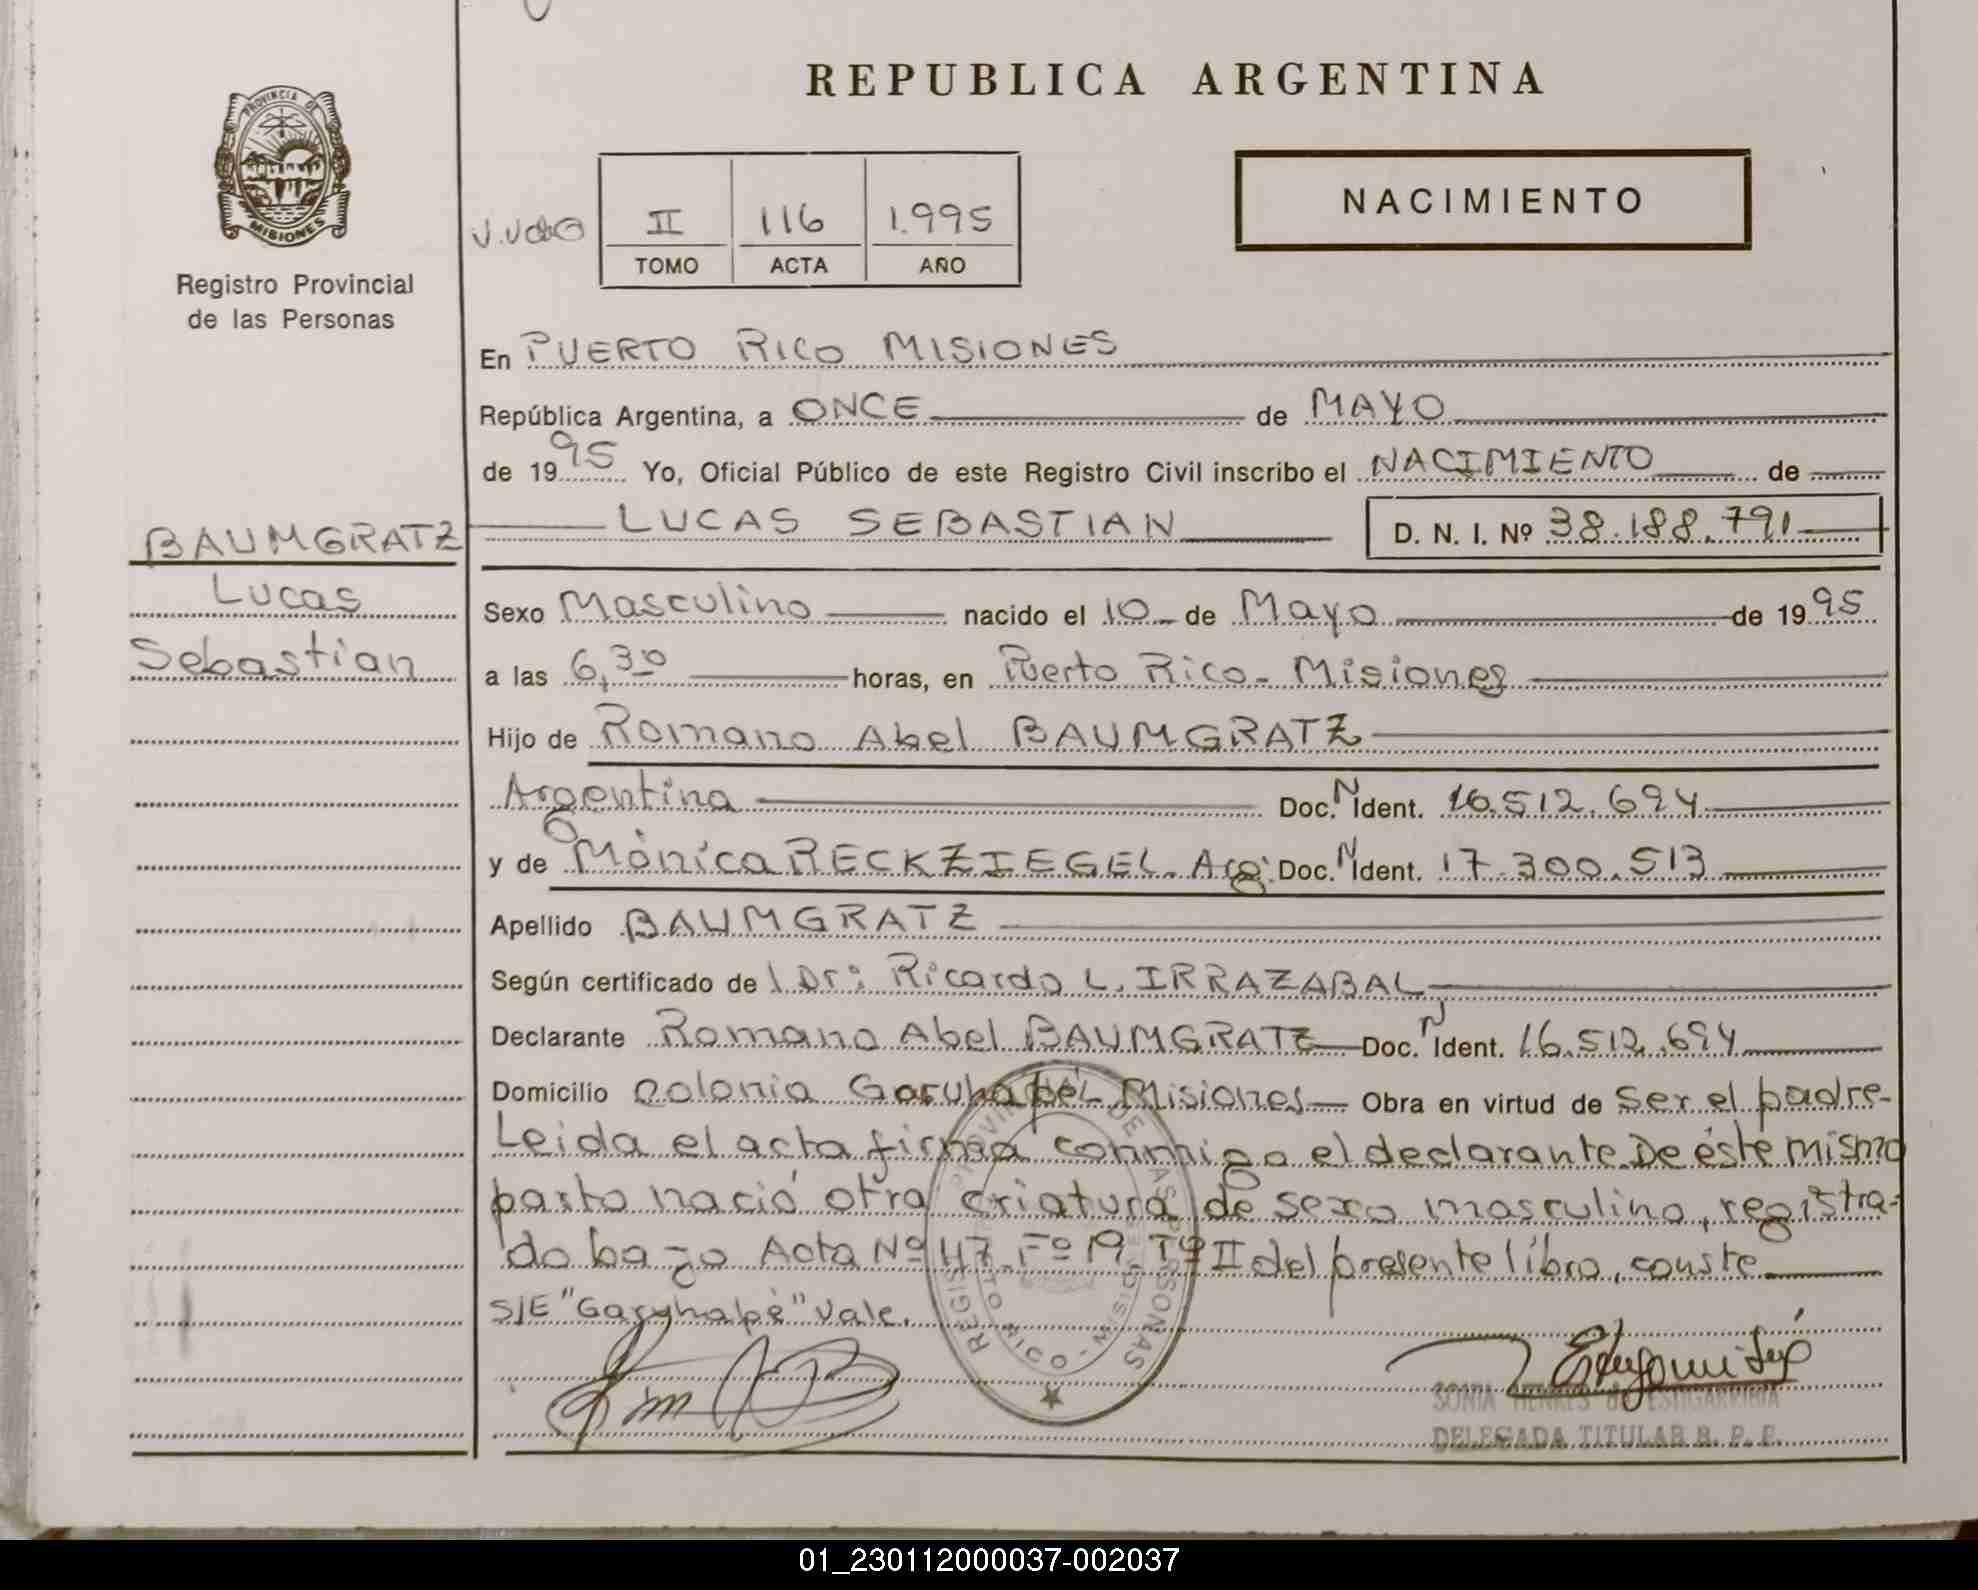 REPUBLICA ARGENTINA
PROVINCIA DE MISIONES
Registro Provincial
de las Personas
NACIMIENTO
II 116 1.995
TOMO ACTA AÑO
En PUERTO RICO MISIONES
República Argentina, a ONCE de MAYO
de 1995 Yo, Oficial Público de este Registro Civil inscribo el NACIMIENTO de
BAUMGRATZ
LUCAS SEBASTIAN D. N. I. Nº 38.188.791
Lucas
Sebastian
Sexo Masculino nacido el 10 de Mayo de 1995
a las 6,30 horas, en Puerto Rico - Misiones
Hijo de Romano Abel BAUMGRATZ
Argentina Doc. N Ident. 16.512.694
y de Mónica RECKZIEGEL. Arg. Doc. N Ident. 17.300.513
Apellido BAUMGRATZ
Según certificado de l Dr: Ricardo L. IRRAZABAL
Declarante Romano Abel BAUMGRATZ Doc. N Ident. 16.512.694
Domicilio Colonia Garuhapé Misiones Obra en virtud de Ser el padre-
Leida el acta firma conmigo el declarante. De éste mismo
parto nació otra criatura de sexo masculino, registra-
do bajo Acta Nº 117 Fº 19 Tº II del presente libro, conste
S/E "Garuhapé" Vale.
SONIA HENKES de ESTIGARRIBIA
DELEGADA TITULAR R. P. P.
01_230112000037-002037